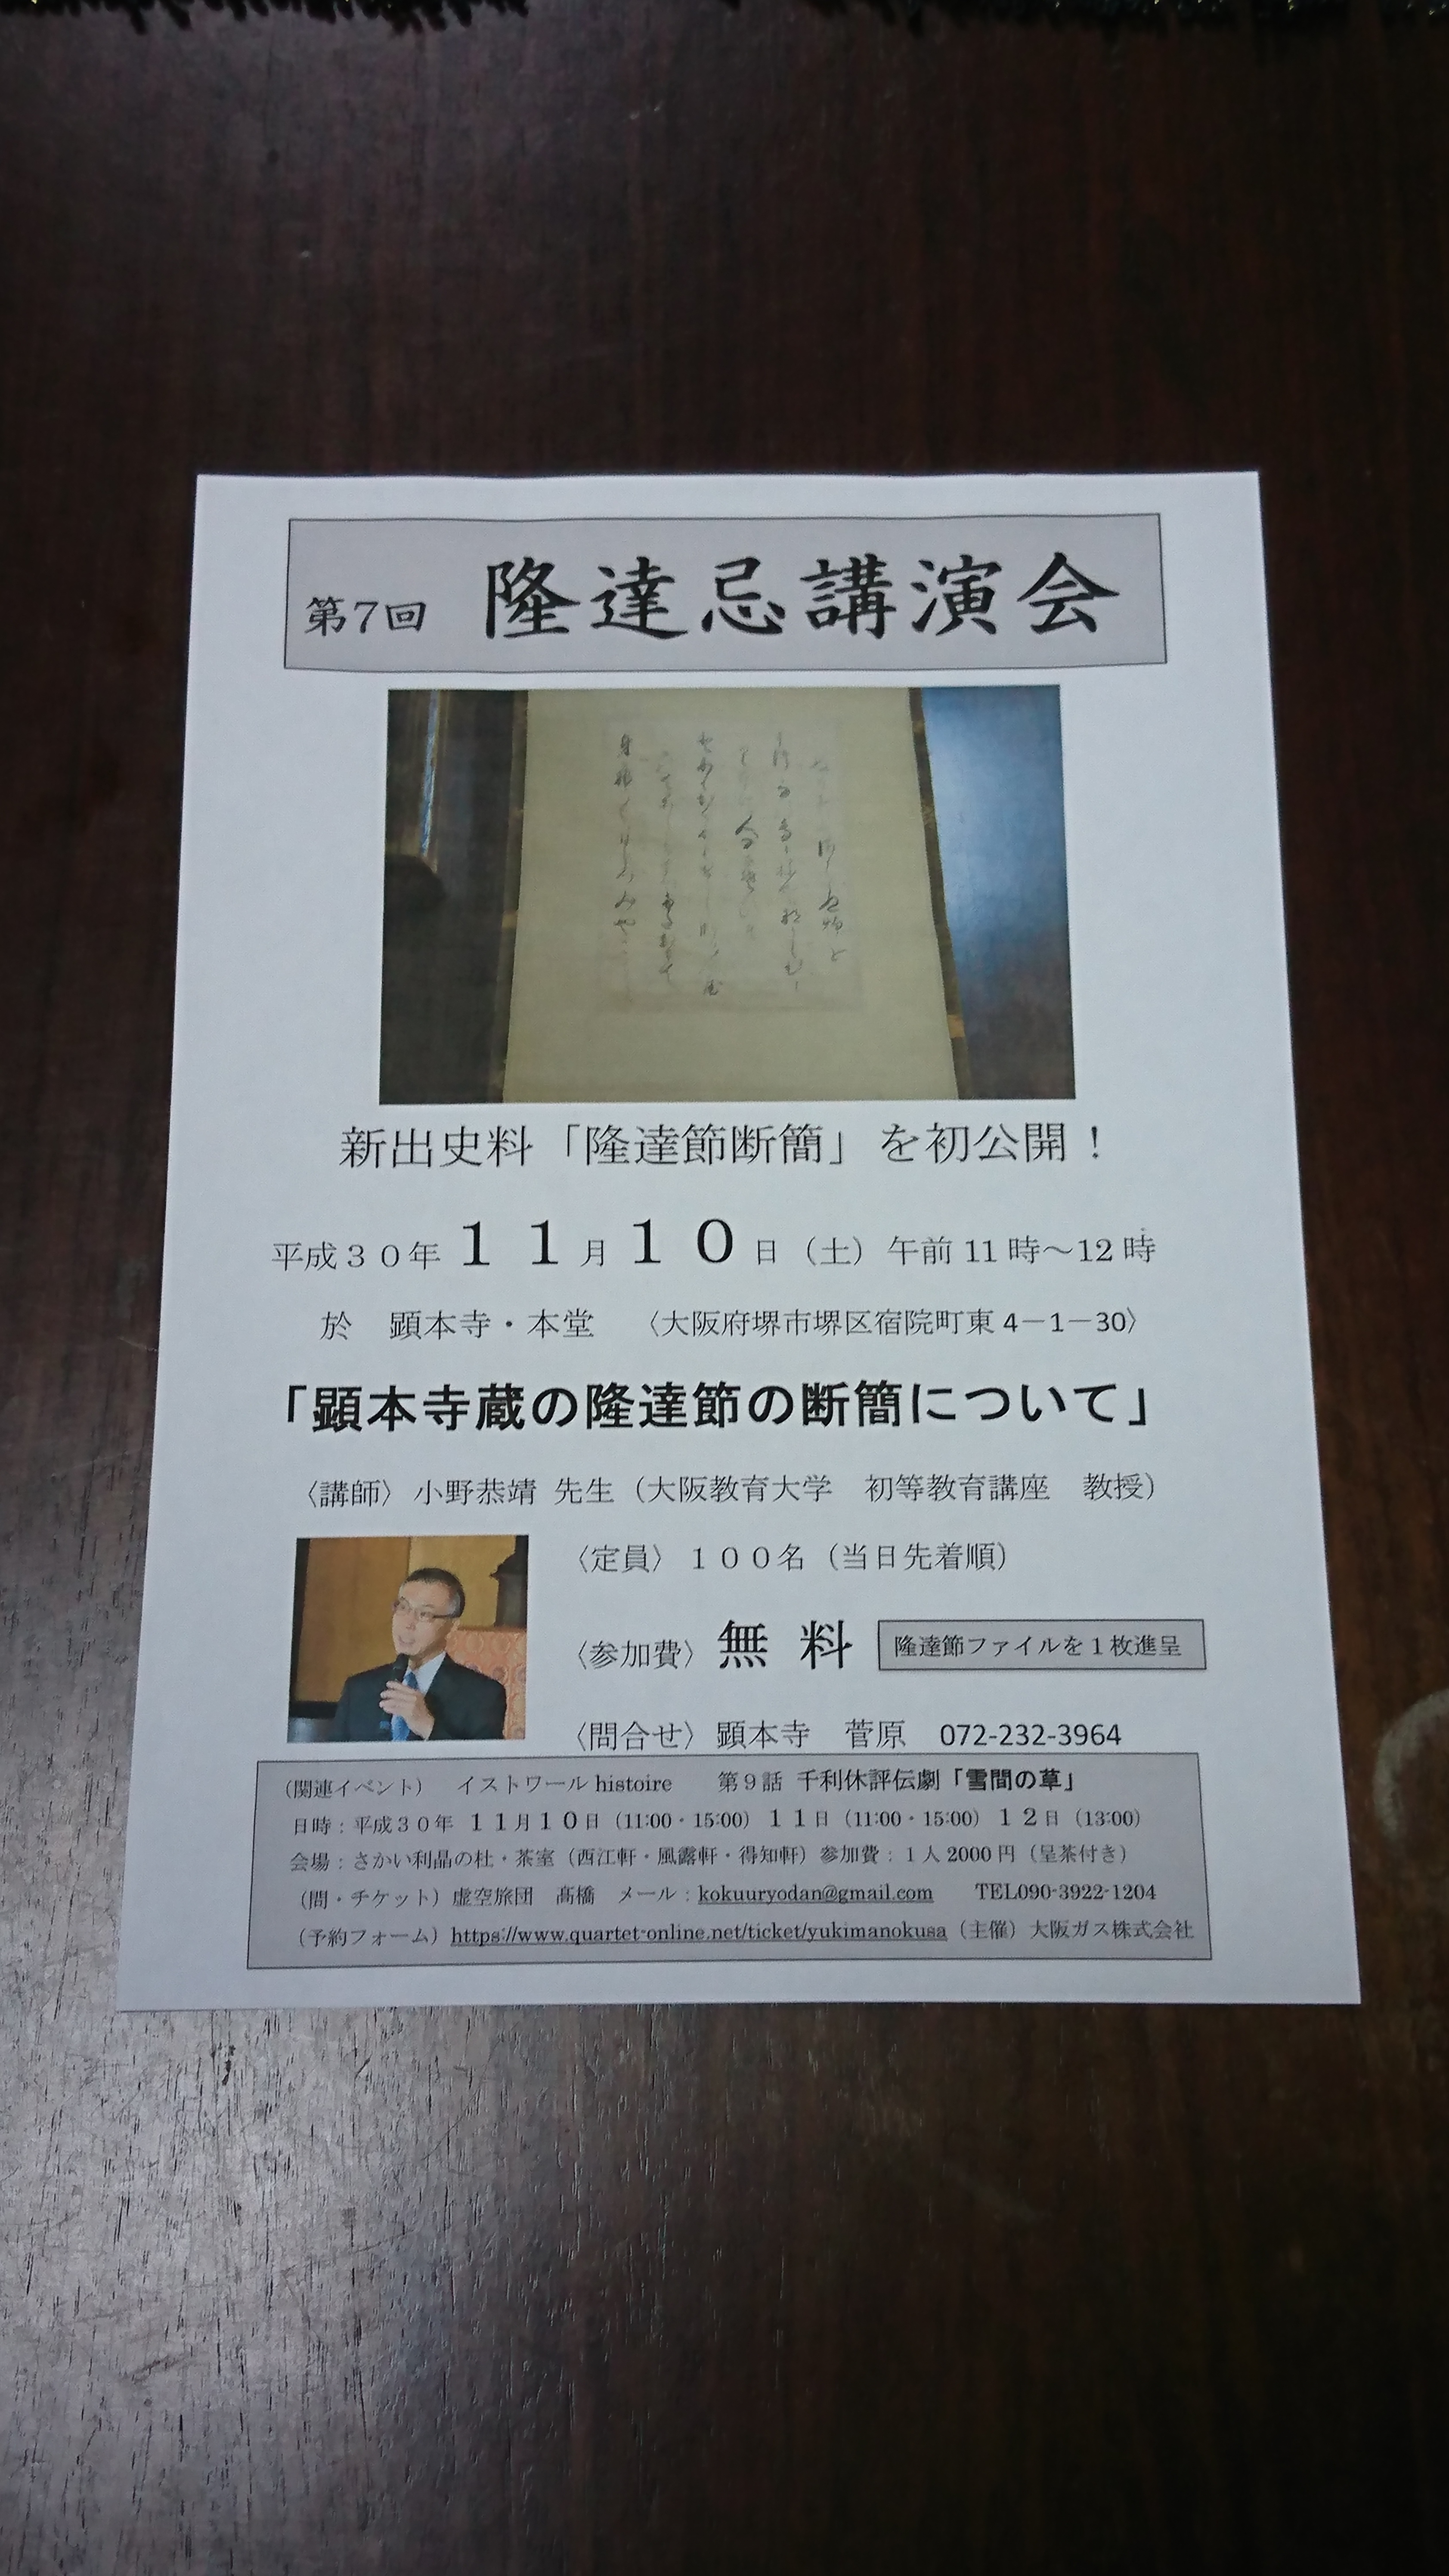 第7回 隆達忌講演会
新出史料「隆達節断簡」を初公開！
平成３０年１１月１０日（土）午前11時～12時
於　顕本寺・本堂　〈大阪府堺市堺区宿院町東4－1－30〉
「顕本寺蔵の隆達節の断簡について」
〈講師〉小野恭靖 先生（大阪教育大学　初等教育講座　教授）
〈定員〉１００名（当日先着順）
〈参加費〉無 料 隆達節ファイルを１枚進呈
〈問合せ〉顕本寺　菅原　072-232-3964
（関連イベント）　イストワール histoire　　第９話 千利休評伝劇「雪間の草」
日時：平成３０年 １１月１０日（11:00・15:00）１１日（11:00・15:00）１２日（13:00）
会場：さかい利晶の杜・茶室（西江軒・風露軒・得知軒）参加費：１人2000円（呈茶付き）
（問・チケット）虚空旅団　髙橋　メール：kokuuryodan@gmail.com　　TEL090-3922-1204
（予約フォーム）https://www.quartet-online.net/ticket/yukimanokusa（主催）大阪ガス株式会社